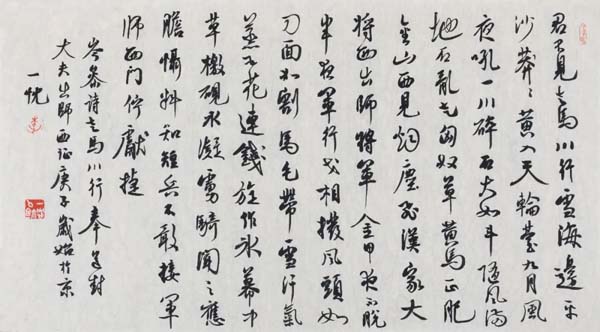 君不見走馬川行雪海邊平
沙莽々黄入天輪臺九月風
夜吼一川碎石大如斗隨風滿
地石亂走匈奴草黄馬正肥
金山西見烟塵飛漢家大
將西出師將軍金甲夜不脱
半夜軍行戈相撥風頭如
刀面如割馬毛帶雪汗氣
蒸五花連錢旋作冰幕中
草檄硯水凝虜騎聞之應
膽懾料知短兵不敢接軍
師西門佇獻捷
岑參詩走馬川行奉送封
大夫出師西征庚子歲始於京
一忱